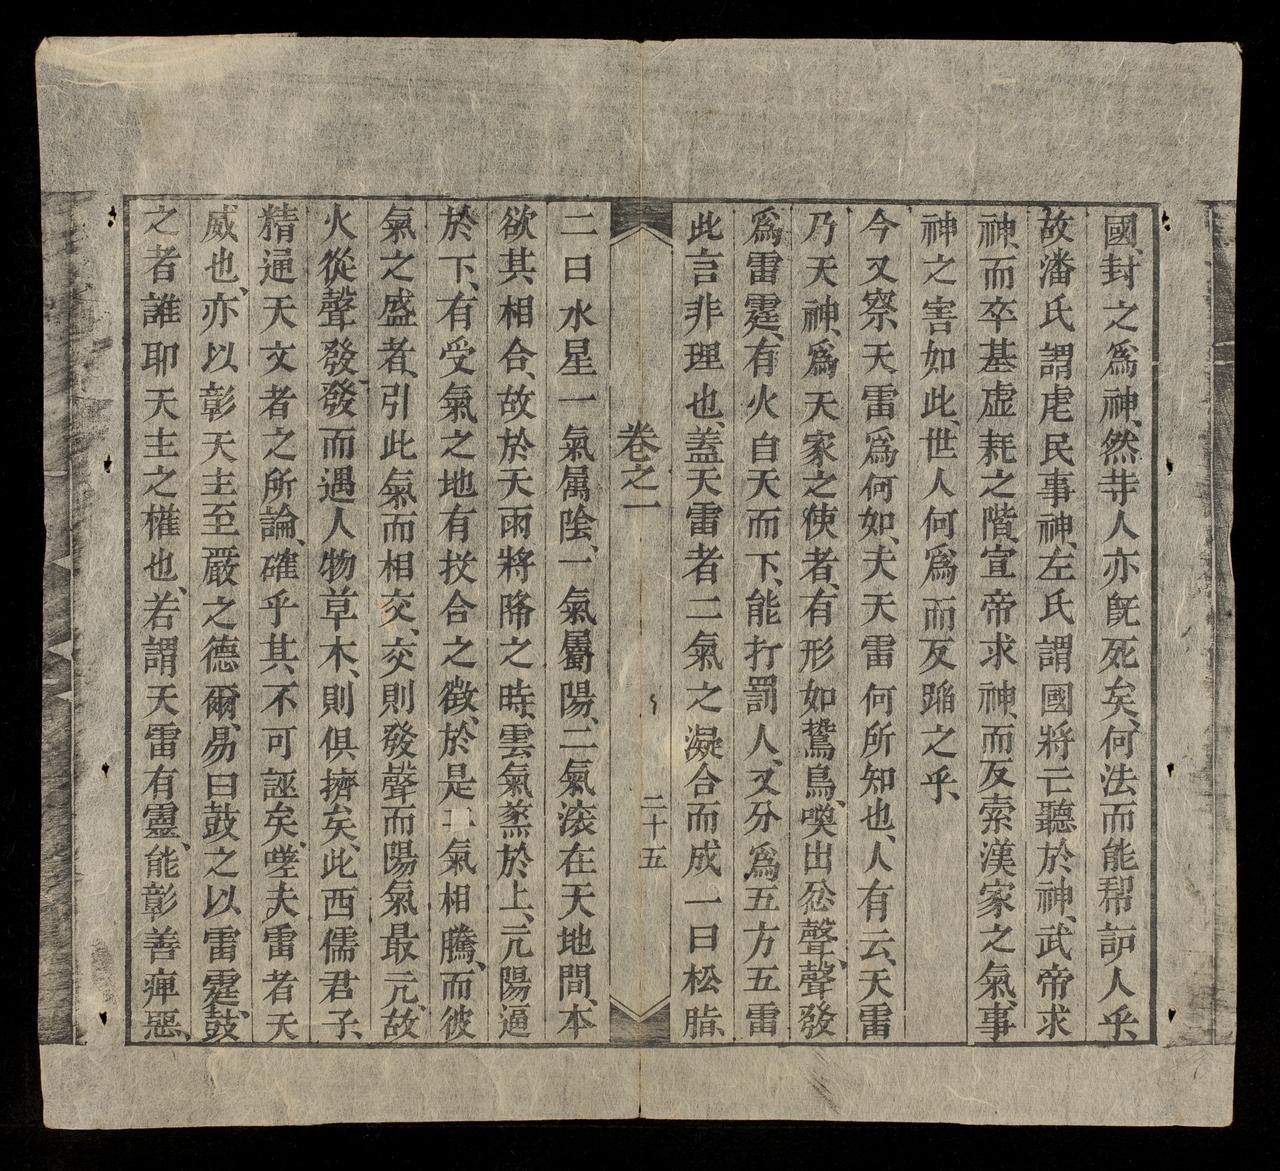 國、封之爲神、然其人亦旣死矣、何法而能帮助人乎、
故潘氏謂虐民事神、左氏謂國將亡聽於神、武帝求
神、而卒基虛耗之階、宣帝求神、而反索漢家之氣、事
神之害如此、世人何爲而反蹈之乎、
今又察天雷爲何如、夫天雷何所知也、人有云、天雷
乃天神、爲天家之使者、有形如鷙鳥、喚出忿聲、聲發
爲雷霆、有火自天而下、能打罰人、又分爲五方五雷
此言非理也、蓋天雷者二氣之凝合而成一曰松脂、
卷之一
二十五
二曰水星一氣属陰、一氣屬陽、二氣滚在天地間、本
欲其相合、故於天雨將降之時、雲氣蒸於上、亢陽逼
於下、有受氣之地有扠合之徵、於是二氣相騰、而彼
氣之盛者、引此氣而相交、交則發聲而陽氣最亢、故
火從聲發、發而遇人物草木、則俱擠矣、此西儒君子、
精通天文者之所論、確乎其不可誣矣、嗟夫雷者天
威也、亦以彰天主至嚴之德爾、易曰鼓之以雷霆、鼓
之者誰耶天主之權也、若謂天雷有靈、能彰善癉惡、